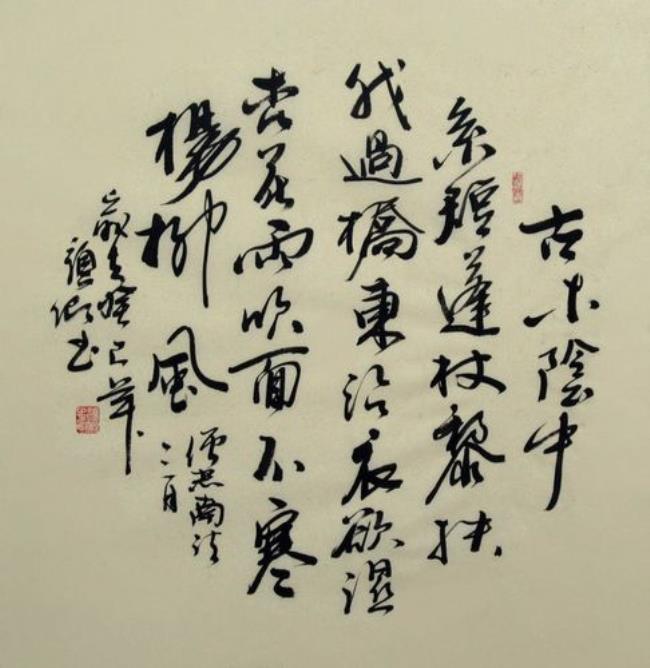 古木陰中
系短蓬杖黎扶
我過橋東沾衣欲湿
杏花雨吹面不寒
楊柳風
僧志南詩
二月
癸巳年
書